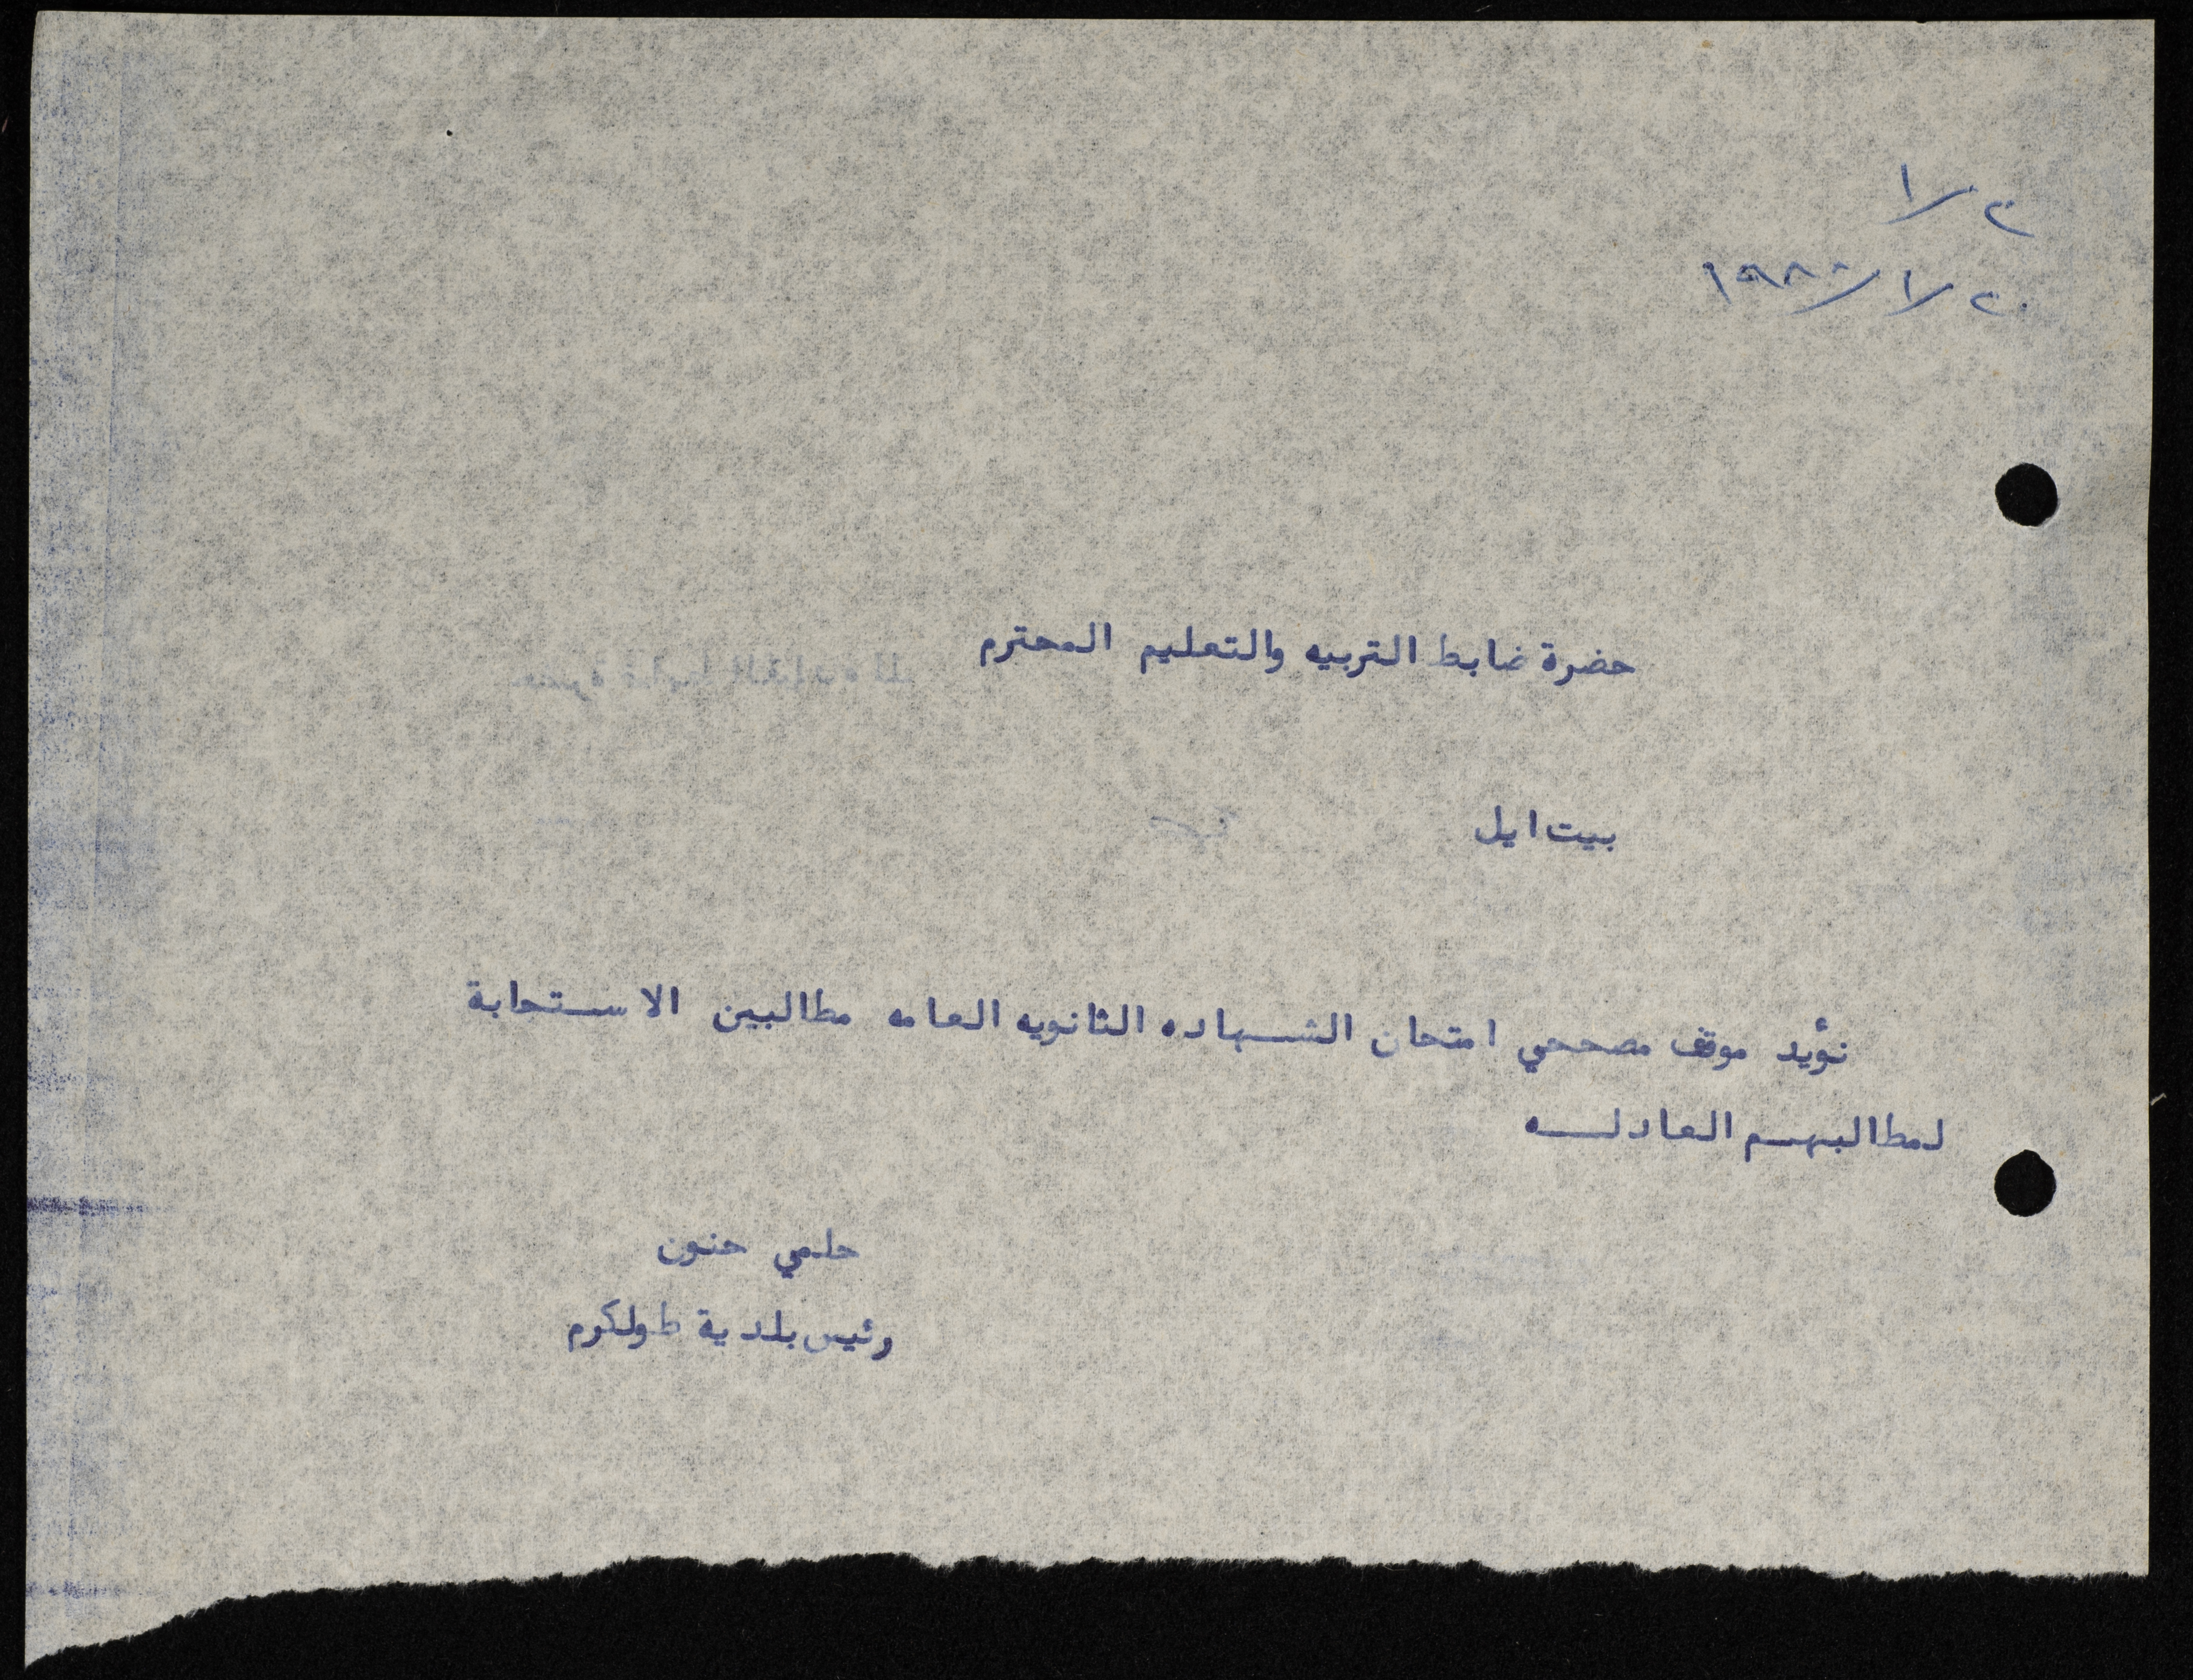 ٢/١
٢٠/١/١٩٨٠
حضرة ضابط التربيه والتعليم المحترم
بيت ايل
نؤيد موقف مصححي امتحان الشهاده الثانويه العامه مطالبين الاستجابة
لمطالبهم العادله
حلمي حنون
رئيس بلدية طولكرم